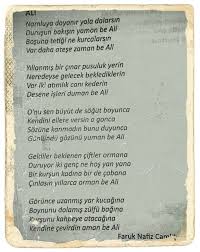 ALİ
Namluya dayanır yola dalarsın
Duruşun bakışın yaman be Ali
Boşuna tetiği ne kurcalarsın
Var daha ateşe zaman be Ali
Yıllanmış bir çınar pusuluk yerin
Neredeyse gelecek beklediklerin
Var iki atımlık canı kederin
Desene işleri duman be Ali
O'nu sen büyüt de söğüt boyunca
Kendini ellere versin o gonca
Sözüne kanmadın bunu duyunca
Gününde gözünü yuman be Ali
Gelciler beklenen çiftler ormana
Duruyor iki genç ne hoş yan yana
Bir kurşun kadına bir de çobana
Çınlasın yıllarca orman be Ali
Görünce uzanmış yar kucağına
Boynunu dolamış zülfü bağına
Kurşunu kahpeye atacağına
Kendine çevirdin aman be Ali
Faruk Nafiz